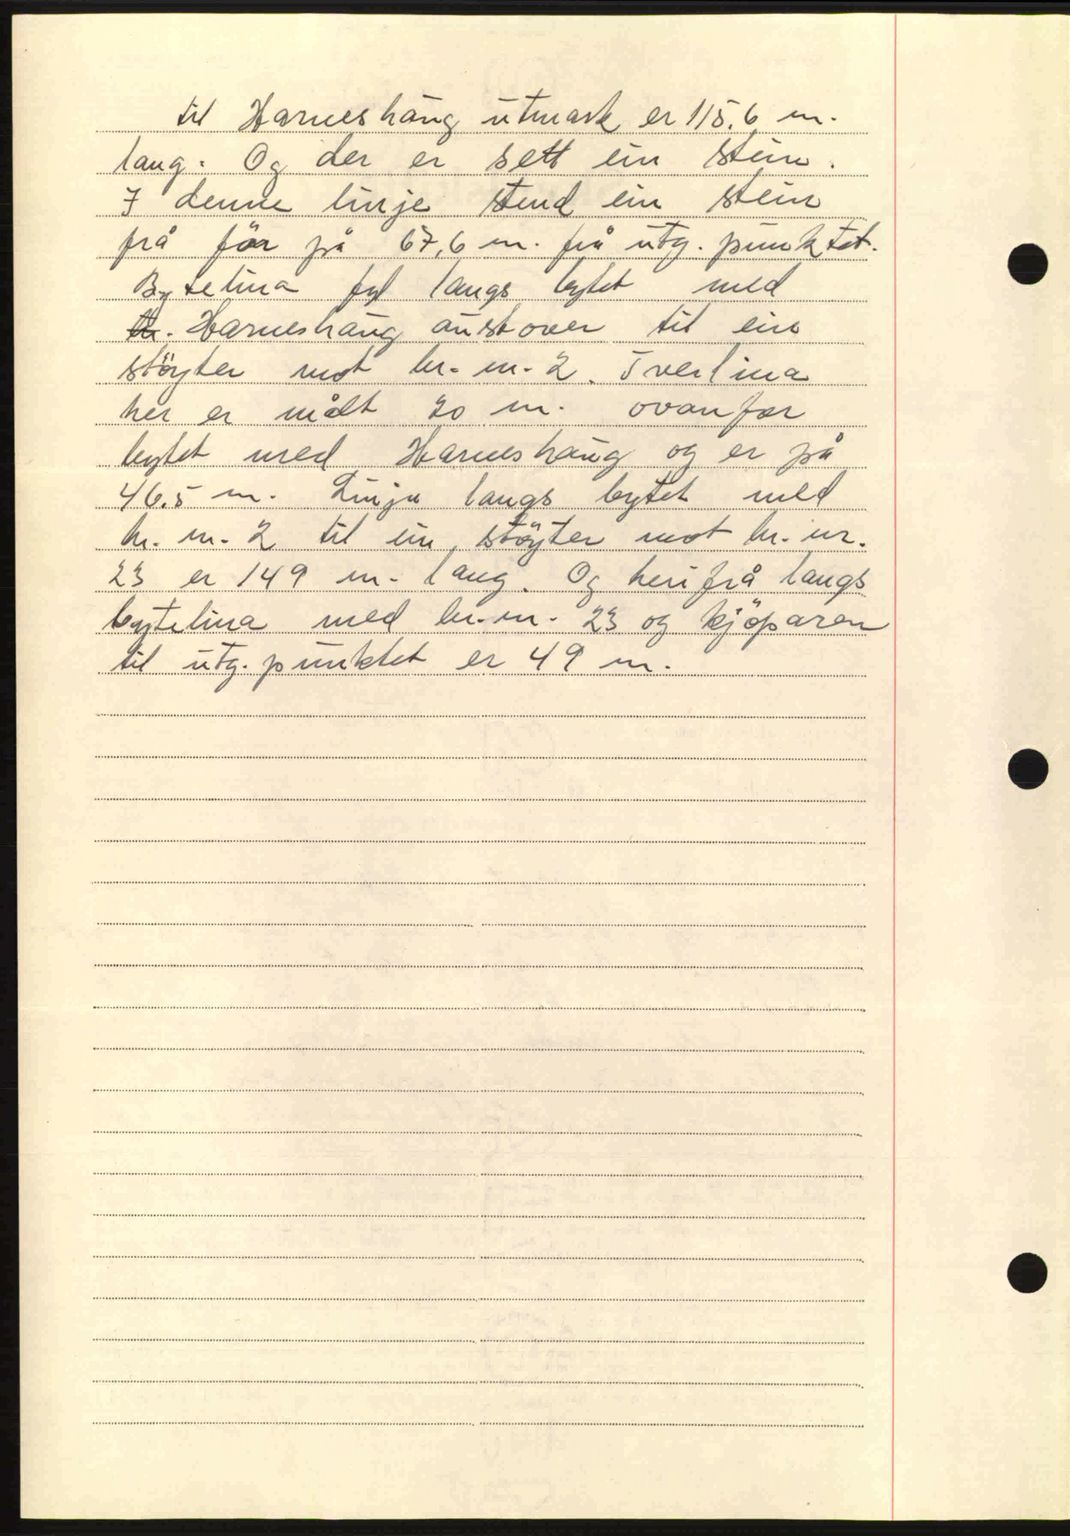 til Harneshaug utmark er 115.6 m.
lang. Og der er sett ein stein.
I denne linje stend ein stein
frå før på 67,6 m. frå utg. punktet.
Bytelina fyl langs bytet med
Harneshaug austover til ein
støyter mot br. nr. 2. Tverlina
her er målt 20 m. ovanfor
bytet med Harneshaug og er på
46.5 m. Linja langs bytet med
br. nr. 2 til ein støyter mot br. nr.
23 er 149 m. lang. Og herifrå langs
bytelina med br. nr. 23 og kjøparen
til utg. punktet er 49 m.